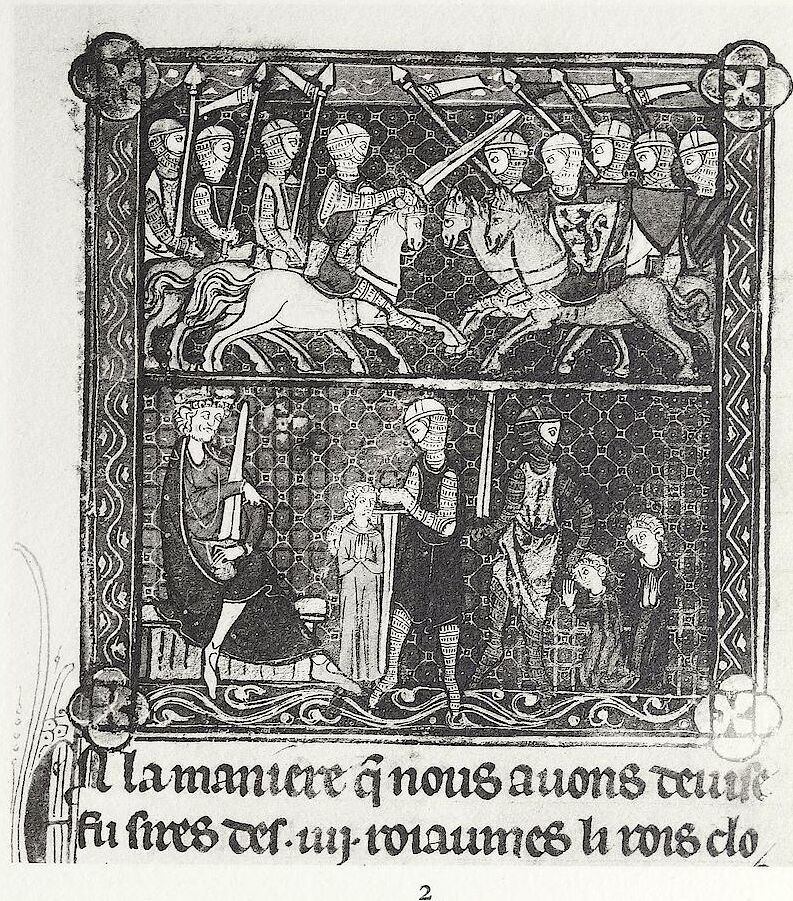 A la maniere q̃ nous auons deuise
fu sires des ·iiij· roiaumes li rois clo
2